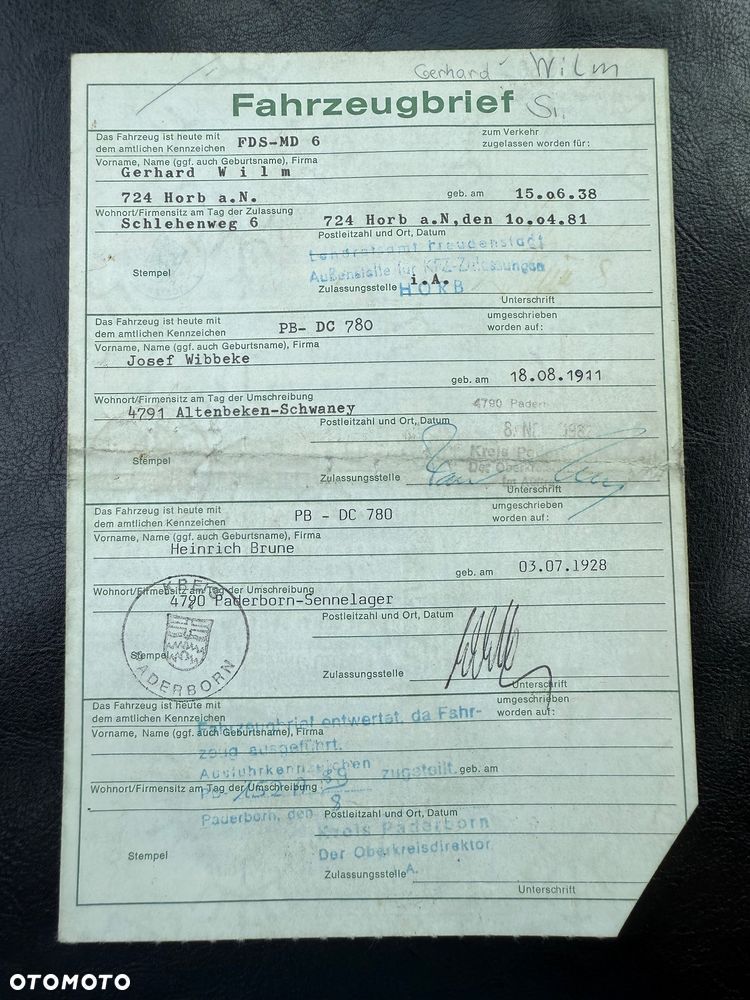 Gerhard Wilm
Fahrzeugbrief
Das Fahrzeug ist heute mit
dem amtlichen Kennzeichen FDS-MD 6
zum Verkehr
zugelassen worden für:
Vorname, Name (ggf. auch Geburtsname), Firma
Gerhard W i l m
724 Horb a.N. geb. am 15.o6.38
Wohnort/Firmensitz am Tag der Zulassung
Schlehenweg 6 724 Horb a.N,den 1o.o4.81
Postleitzahl und Ort, Datum
Landratsamt Freudenstadt
Außenstelle für KFZ-Zulassungen
Stempel Zulassungsstelle i.A.
HORB
Unterschrift
Das Fahrzeug ist heute mit
dem amtlichen Kennzeichen PB- DC 780
umgeschrieben
worden auf:
Vorname, Name (ggf. auch Geburtsname), Firma
Josef Wibbeke
geb. am 18.08.1911
Wohnort/Firmensitz am Tag der Umschreibung
4791 Altenbeken-Schwaney
4790
Postleitzahl und Ort, Datum
8.
Kreis
Der
Stempel Zulassungsstelle
Unterschrift
Das Fahrzeug ist heute mit
dem amtlichen Kennzeichen PB - DC 780
umgeschrieben
worden auf:
Vorname, Name (ggf. auch Geburtsname), Firma
Heinrich Brune
geb. am 03.07.1928
Wohnort/Firmensitz am Tag der Umschreibung
4790 Paderborn-Sennelager
Postleitzahl und Ort, Datum
KREIS
PADERBORN
Stempel Zulassungsstelle
Unterschrift
Das Fahrzeug ist heute mit
dem amtlichen Kennzeichen
umgeschrieben
worden auf:
Fahrzeugbrief entwertet, da Fahr-
Vorname, Name (ggf. auch Geburtsname), Firma
zeug ausgeführt.
Ausfuhrkennzeichen
zugeteilt. geb. am
Wohnort/Firmensitz am Tag der Umschreibung
Paderborn, den
Postleitzahl und Ort, Datum
Kreis Paderborn
Der Oberkreisdirektor
Stempel Zulassungsstelle
Unterschrift
OTOMOTO